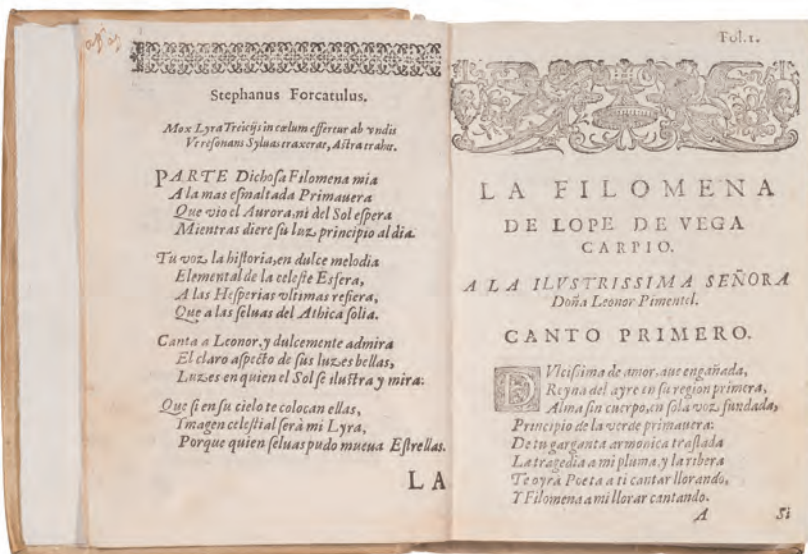 Stephanus Forcatulus.
Mox Lyra Treicijs in cœlum efferetur ab vndis
Vt resonans Syluas traxeras, Astra trahes.
PARTE Dichosa Filomena mia
A la mas esmaltada Primauera
Que vio el Aurora, ni del Sol espera
Mientras diere su luz principio al dia.
Tu voz la historia, en dulce melodia
Elemental de la celeste Esfera,
A las Hesperias vltimas refiera,
Que a las seluas del Athica solia.
Canta a Leonor, y dulcemente admira
El claro aspecto de sus luzes bellas,
Luzes en quien el Sol se ilustra y mira:
Que si en su cielo te colocan ellas,
Imagen celestial serà mi Lyra,
Porque quien seluas pudo mueua Estrellas.
LA
Fol.1.
LA FILOMENA
DE LOPE DE VEGA
CARPIO.
A LA ILVSTRISSIMA SEÑORA
Doña Leonor Pimentel.
CANTO PRIMERO.
DVlcissima de amor, aue engañada,
Reyna del ayre en su region primera,
Alma sin cuerpo, en sola voz fundada,
Principio de la verde primauera:
De tu garganta armonica traslada
La tragedia a mi pluma, y la ribera
Te oyrà Poeta a ti cantar llorando,
Y Filomena a mi llorar cantando.
A
Si